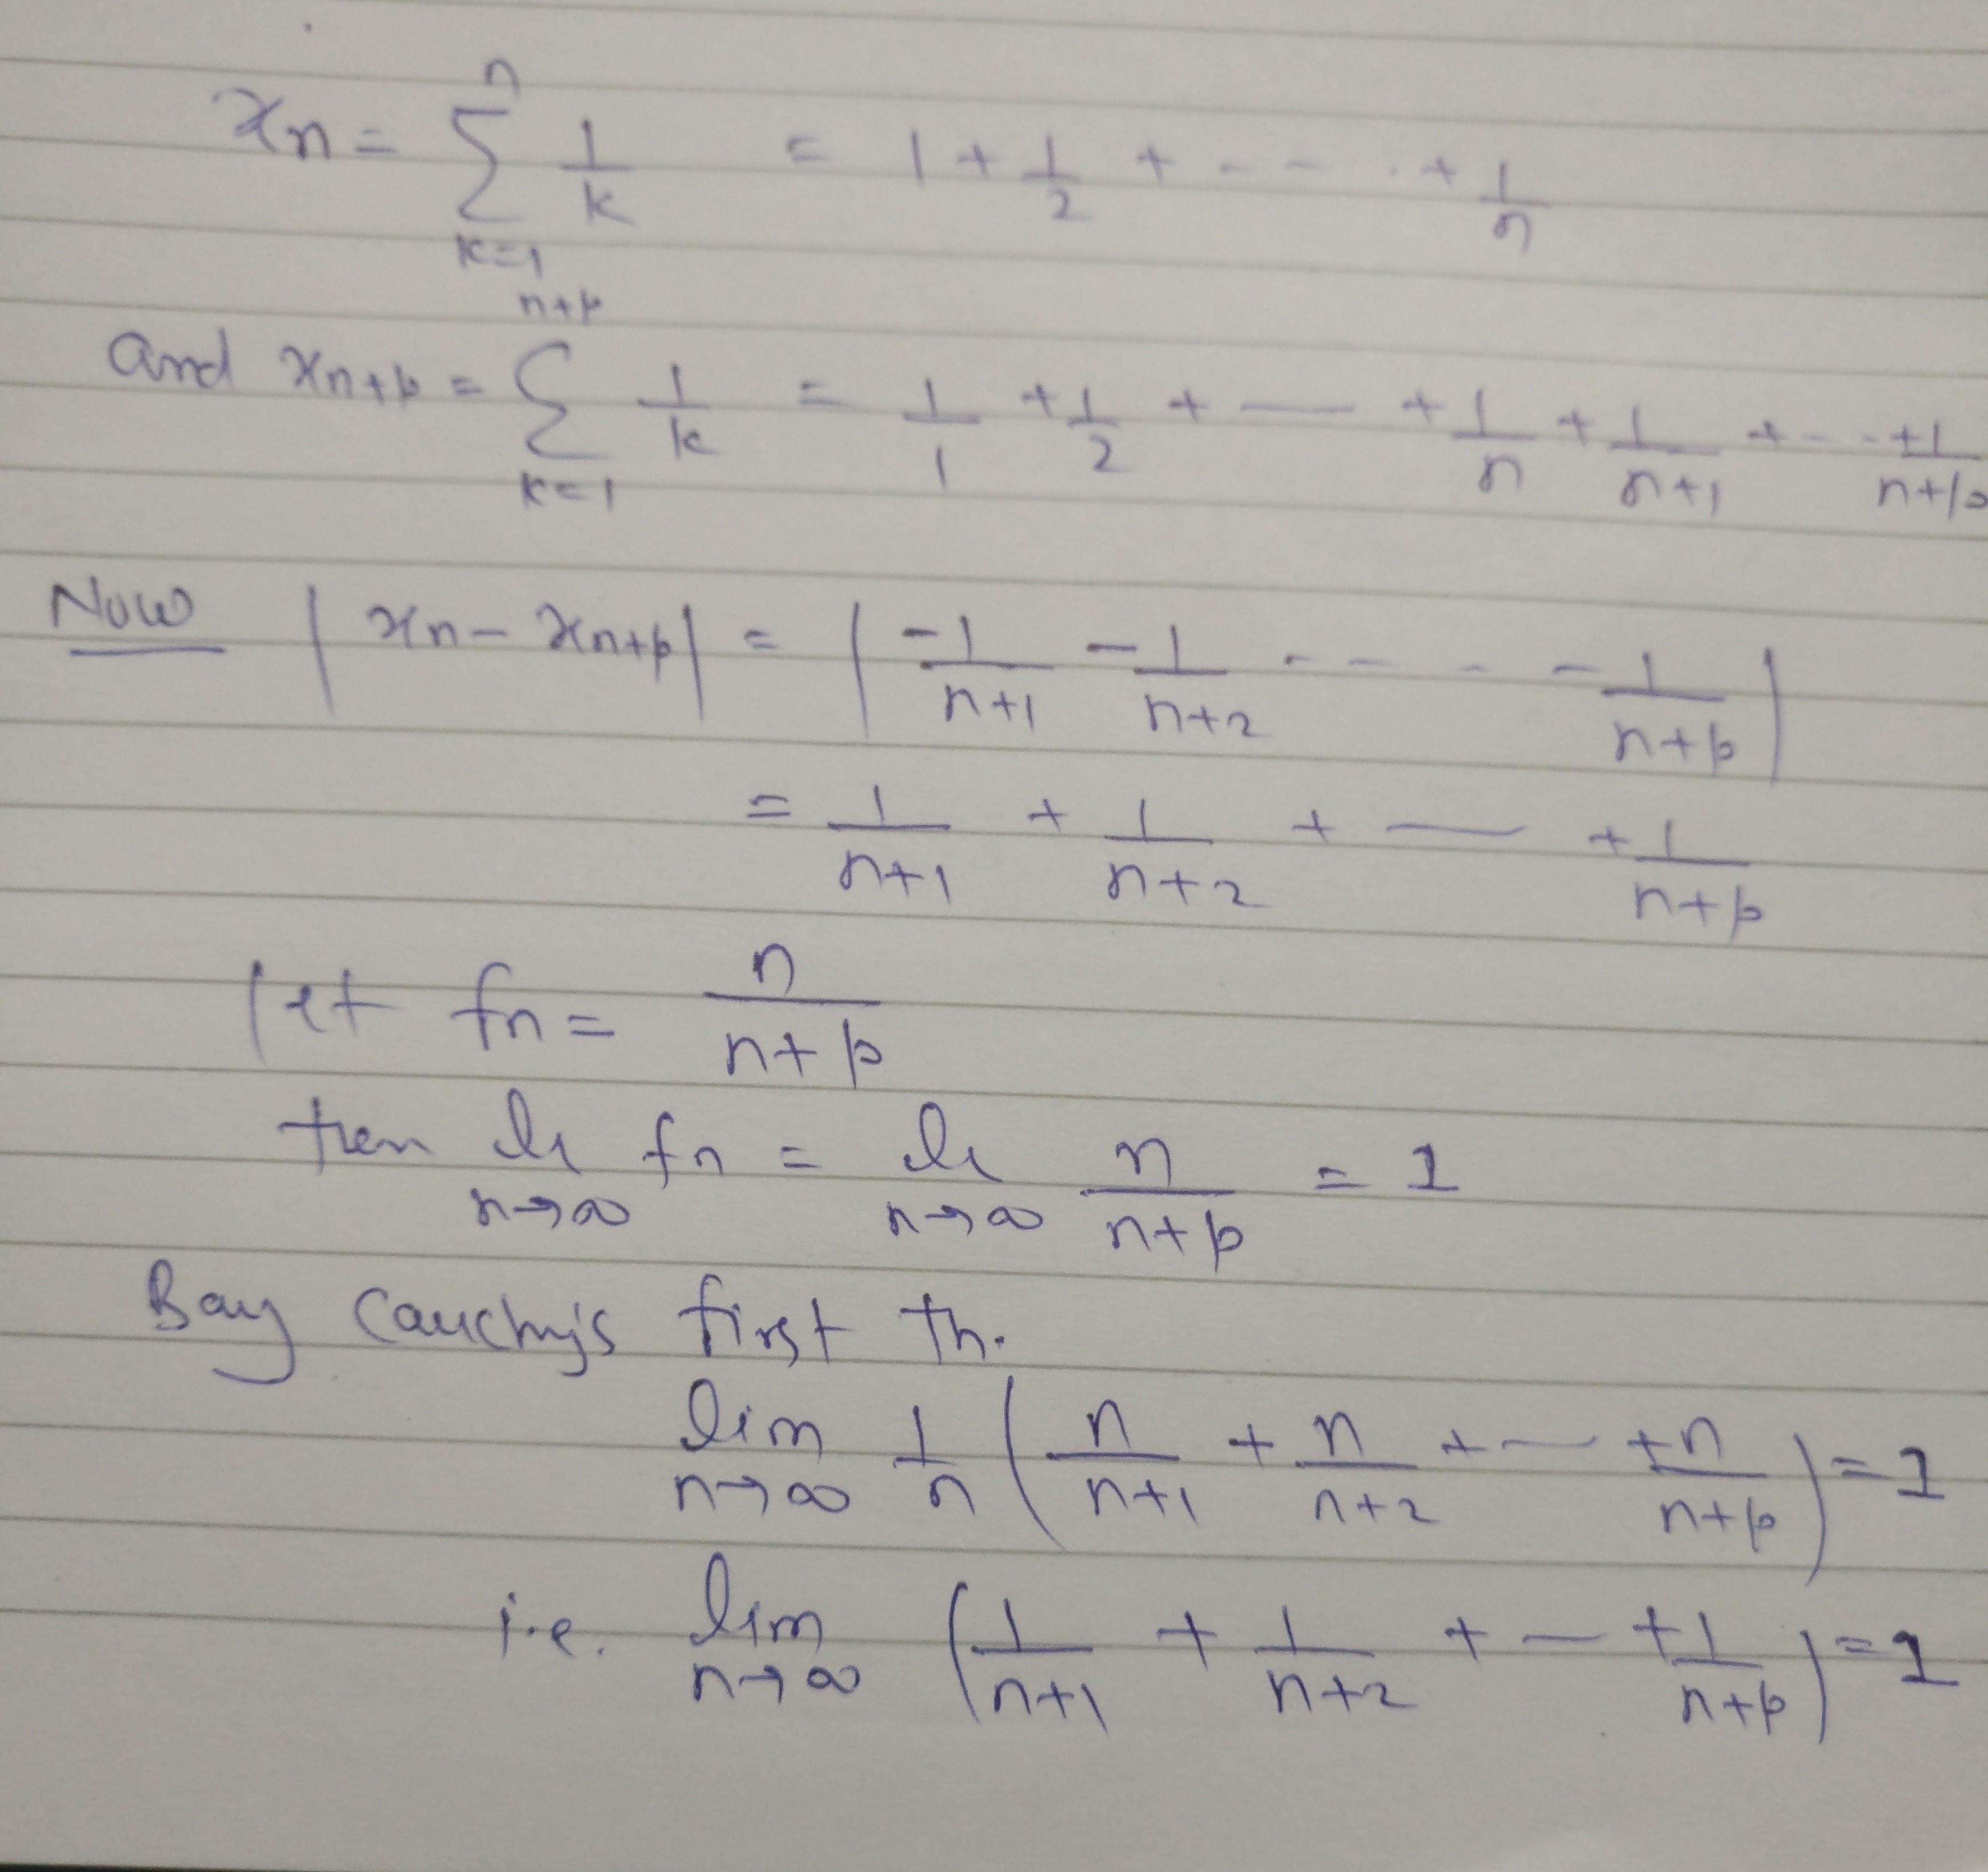 xn = n∑k=1 1/k = 1 + 1/2 + - - . + 1/n
and xn+p = n+p∑k=1 1/k = 1/1 + 1/2 + — + 1/n + 1/n+1 + - - + 1/n+p
Now | xn - xn+p | = | -1/n+1 - 1/n+2 - - - - 1/n+p |
= 1/n+1 + 1/n+2 + — + 1/n+p
let fn = n/n+p
then li n→∞ fn = li n→∞ n/n+p = 1
Bay Cauchy's first th.
lim n→∞ 1/n ( n/n+1 + n/n+2 + — + n/n+p ) = 1
i.e. lim n→∞ ( 1/n+1 + 1/n+2 + — + 1/n+p ) = 1